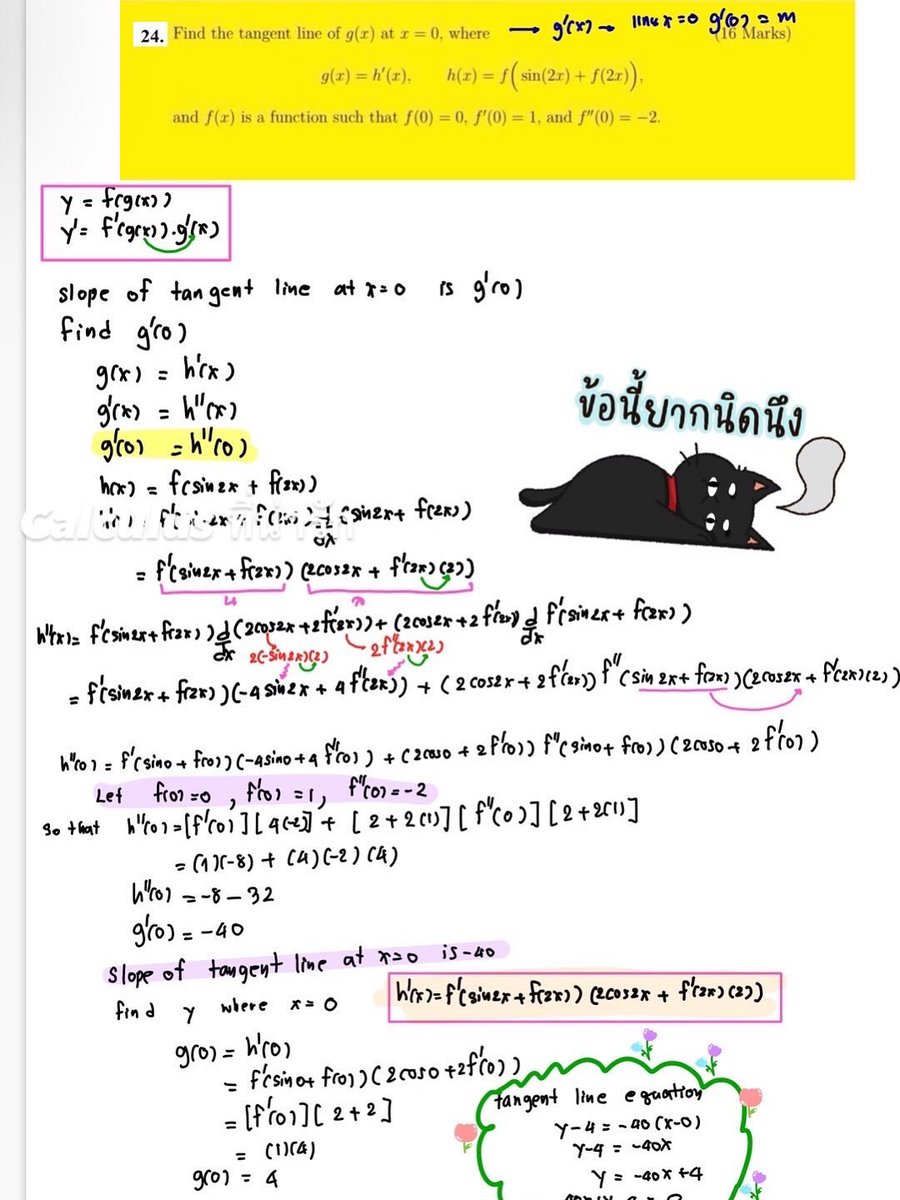 24. Find the tangent line of g(x) at x = 0, where → g'(x) → แทน x=0 g'(0) = m
(16 Marks)
g(x) = h'(x), h(x) = f(sin(2x) + f(2x)),
and f(x) is a function such that f(0) = 0, f'(0) = 1, and f''(0) = −2.
y = f(g(x))
y' = f'(g(x)).g'(x)
slope of tangent line at x=0 is g'(0)
find g'(0)
g(x) = h'(x)
g'(x) = h''(x)
g'(0) = h''(0)
ข้อนี้ยากนิดนึง
h(x) = f(sin2x + f(2x))
Calculus
h'(x) = f'(sin2x + f(2x)) d/dx (sin2x + f(2x))
= f'(sin2x + f(2x)) (2cos2x + f'(2x)(2))
h''(x) = f'(sin2x + f(2x)) d/dx (2cos2x + 2f'(2x)) + (2cos2x + 2f'(2x)) d/dx f'(sin2x + f(2x))
2(-sin2x)(2) 2f''(2x)(2)
= f'(sin2x + f(2x))(-4sin2x + 4f''(2x)) + (2cos2x + 2f'(2x)) f''(sin2x + f(2x))(2cos2x + f'(2x)(2))
h''(0) = f'(sin0 + f(0))(-4sin0 + 4f''(0)) + (2cos0 + 2f'(0)) f''(sin0 + f(0))(2cos0 + 2f'(0))
Let f(0)=0, f'(0)=1, f''(0)=-2
so that h''(0) = [f'(0)][4(-2)] + [2+2(1)][f''(0)][2+2(1)]
= (1)(-8) + (4)(-2)(4)
h''(0) = -8 - 32
g'(0) = -40
slope of tangent line at x=0 is -40
find y where x = 0
h'(x) = f'(sin2x + f(2x)) (2cos2x + f'(2x)(2))
g(0) = h'(0)
= f'(sin0 + f(0))(2cos0 + 2f'(0))
= [f'(0)][2+2]
= (1)(4)
g(0) = 4
tangent line equation
y-4 = -40(x-0)
y-4 = -40x
y = -40x + 4